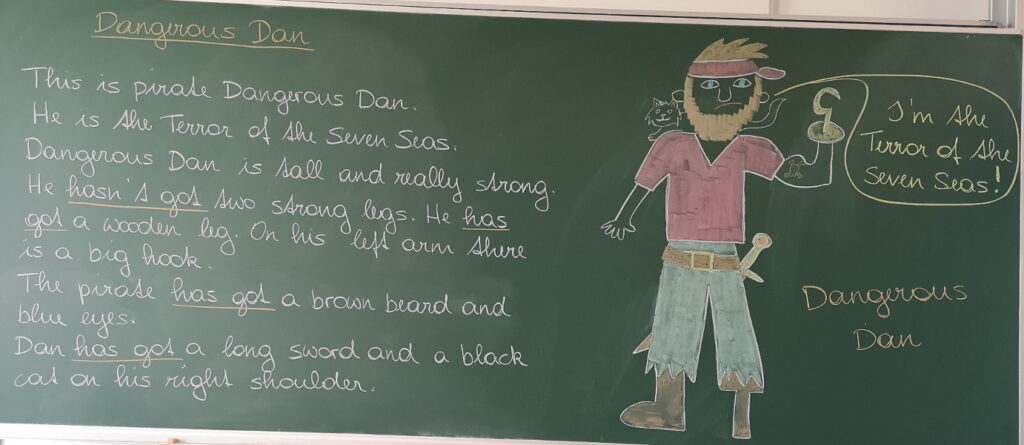 Dangerous Dan
This is pirate Dangerous Dan.
He is the Terror of the Seven Seas.
Dangerous Dan is tall and really strong.
He hasn't got two strong legs. He has
got a wooden leg. On his left arm there
is a big hook.
The pirate has got a brown beard and
blue eyes.
Dan has got a long sword and a black
cat on his right shoulder.
I'm the
Terror of the
Seven Seas!
Dangerous
Dan